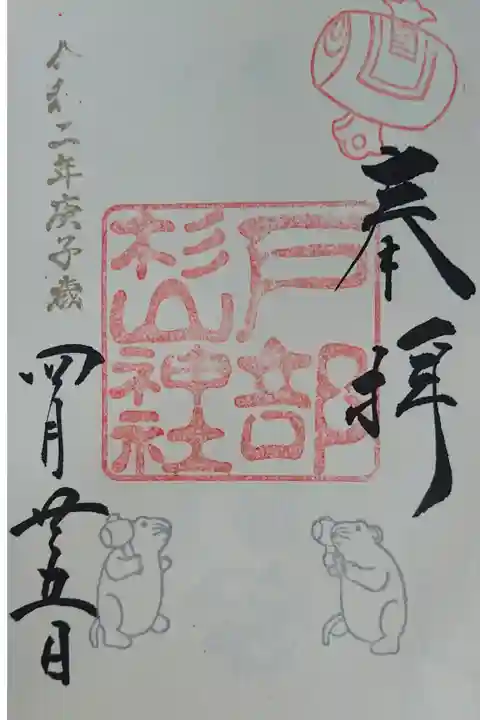 奉拝
戸部
杉山神社
令和二年庚子歳
四月廿五日